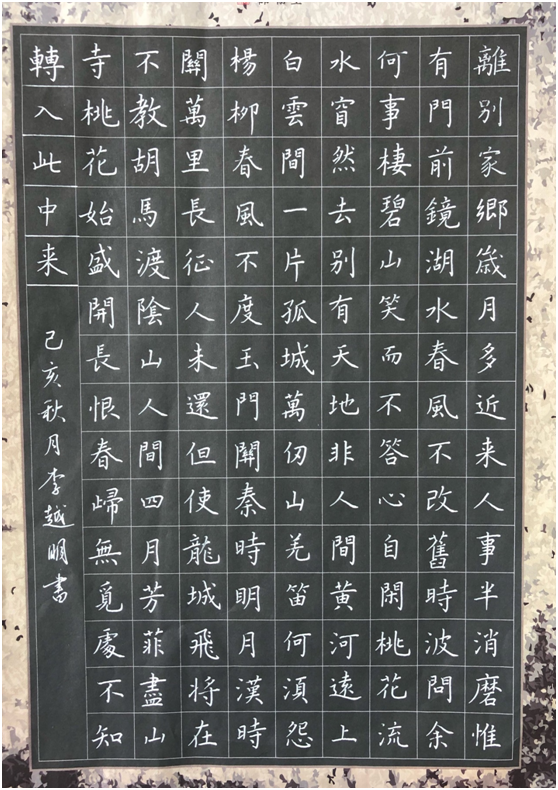 離別家鄉歲月多近来人事半消磨惟
有門前鏡湖水春風不改舊時波問余
何事棲碧山笑而不答心自閑桃花流
水窅然去別有天地非人間黃河遠上
白雲間一片孤城萬仞山羌笛何須怨
楊柳春風不度玉門關秦時明月漢時
關萬里長征人未還但使龍城飛將在
不教胡馬渡陰山人間四月芳菲盡山
寺桃花始盛開長恨春歸無覓處不知
轉入此中来
己亥秋月李越明書